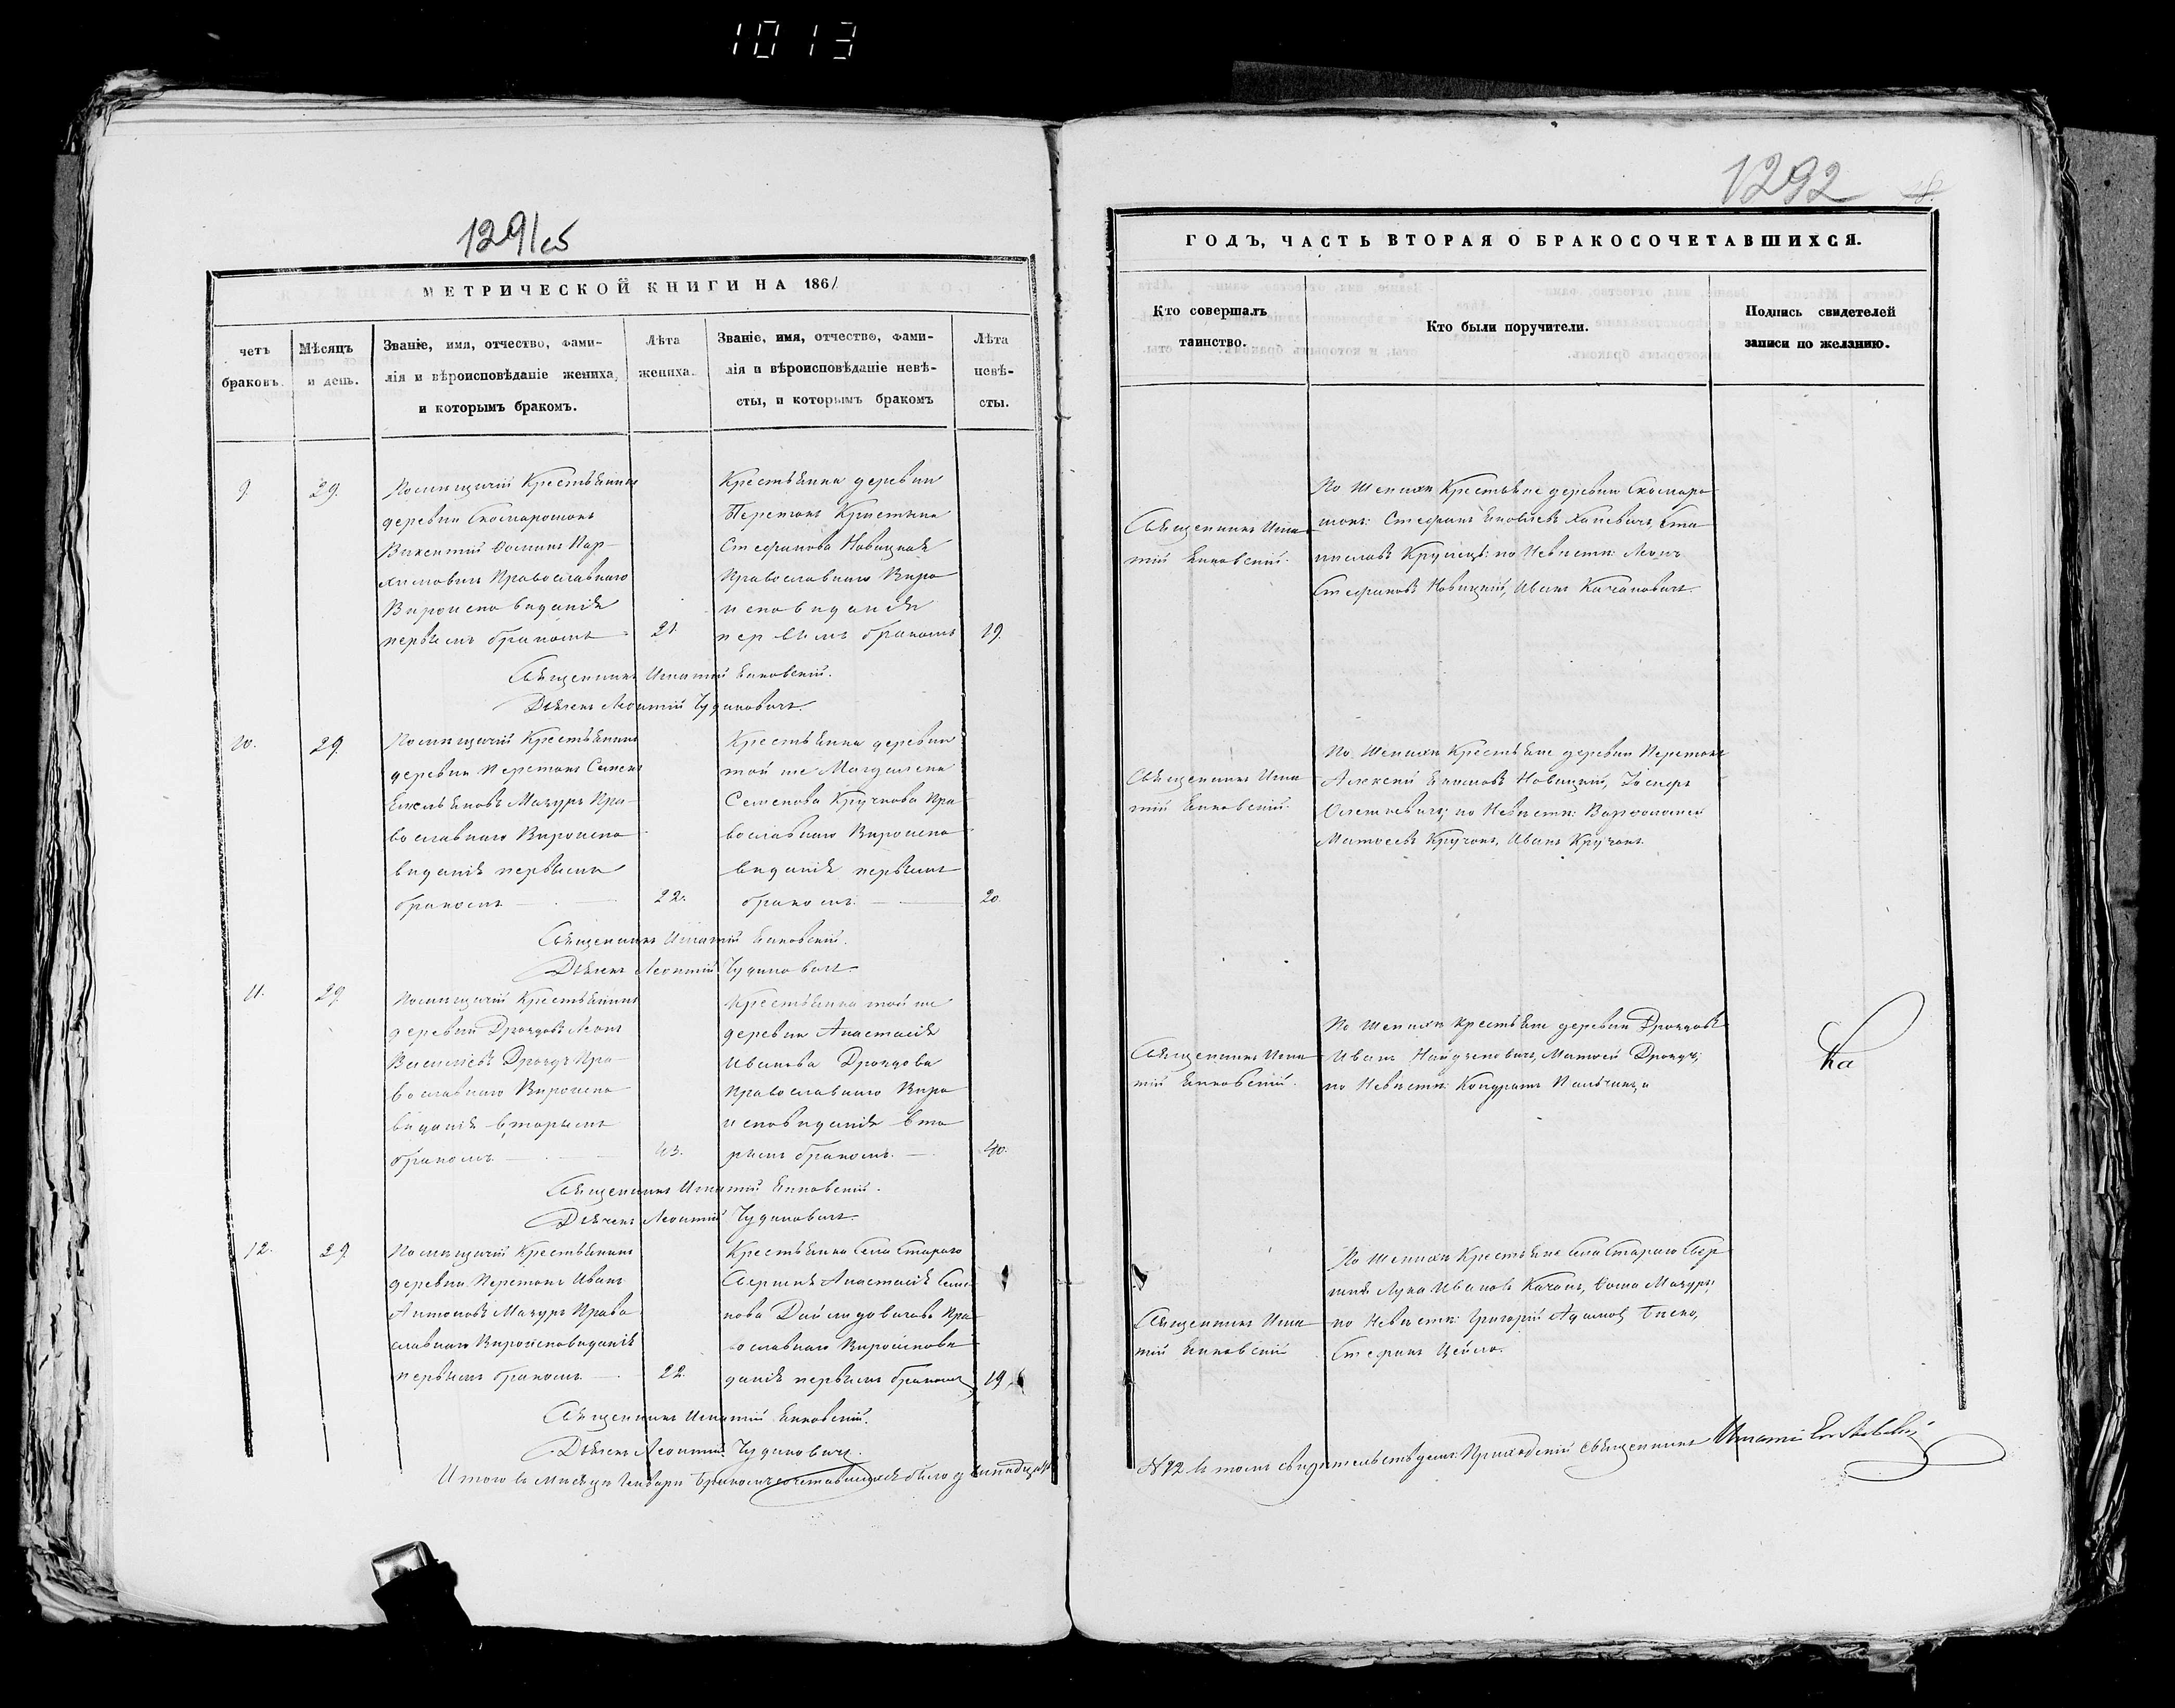 1013
1291об
МЕТРИЧЕСКОЙ КНИГИ НА 1861
четъ браковъ.
Мѣсяцъ и день.
Званіе, имя, отчество, фами-
лія и вѣроисповѣданіе жениха,
и которымъ бракомъ.
Лѣта жениха.
Званіе, имя, отчество, фами-
лія и вѣроисповѣданіе невѣ-
сты, и которымъ бракомъ
Лѣта невѣ-
сты.
9. 29.
Помѣщичій Крестьянинъ
деревни Скомарошокъ
Викентій Ѳоминъ
Православнаго
Вѣроисповѣданія
первымъ бракомъ 21
Крестьянка деревни
Перетокъ Кристина
Стефанова Новицкая
Православнаго Вѣро
исповѣданія
первымъ бракомъ 19.
Священникъ Игнатій Янковскій.
Дьячекъ Леонтій Чудиновичъ.
10. 29
Помѣщичій Крестьянинъ
деревни Перетокъ Семенъ
Емельяновъ Мазуръ Пра-
вославнаго Вѣроиспо
вѣданія первымъ
бракомъ 22.
Крестьянка деревни
той же Магдалена
Семенова Кручкова Пра
вославнаго Вѣроиспо
вѣданія первымъ
бракомъ. 20
Священникъ Игнатій Янковскій.
Дьячекъ Леонтій Чудиновичъ
11. 29
Помѣщичій Крестьянинъ
деревни Дроздовъ Леонъ
Васильевъ Дроздъ Пра-
вославнаго Вѣроиспо
вѣданія вторымъ
бракомъ 43.
Крестьянка той же
деревни Анастасія
Иванова Дроздова
Православнаго Вѣро
исповѣданія вто
рымъ бракомъ. 40.
Священникъ Игнатій Янковскій.
Дьячекъ Леонтій Чудиновичъ.
12. 29
Помѣщичій Крестьянинъ
деревни Перетокъ Иванъ
Антоновъ Мазуръ Право
славнаго Вѣроисповѣданія
первымъ бракомъ 22.
Крестьянка Села Стараго
Свержня Анастасія Семе
нова Дайлидовичова Пра
вославнаго Вѣроисповѣ
данія первымъ бракомъ 19
Священникъ Игнатій Янковскій.
Дьячекъ Леонтій Чудиновичъ.
Итого въ мѣсяцѣ Генварѣ бракомъ сочетавшихся было двѣнадцать
1292
ГОДЪ, ЧАСТЬ ВТОРАЯ О БРАКОСОЧЕТАВШИХСЯ.
Кто совершалъ
таинство.
Кто были поручители.
Подпись свидетелей
записи по желанию.
Священникъ Игна
тій Янковскій.
По Женихѣ Крестьяне деревни Скомаро
шокъ: Стефанъ Яковлевъ Ханевичъ, Ста
ниславъ Крупецъ: по Невѣстѣ: Леонъ
Стефановъ Новицкій, Иванъ Качановичъ.
Священникъ Игна
тій Янковскій.
По Женихѣ Крестьяне деревни Перетокъ
Алексѣй Якимовъ Новицкій,
по Невѣстѣ: Варфоломей
Матѳеевъ Кручокъ, Иванъ Кручокъ.
Священникъ Игна
тій Янковскій.
По Женихѣ крестьяне деревни Дроздовъ
Иванъ Матѳей Дроздъ,
по Невѣстѣ: Кондратъ
Священникъ Игна
тій Янковскій
По Женихѣ Крестьяне Села Стараго Свер
жня Лука Ивановъ Качанъ, Ѳома Мазуръ;
по Невѣстѣ: Григорій Адамовъ
Стефанъ
№ 12 въ томъ свидѣтельствуемъ: Приходскій Священникъ Игнатій Янковскій